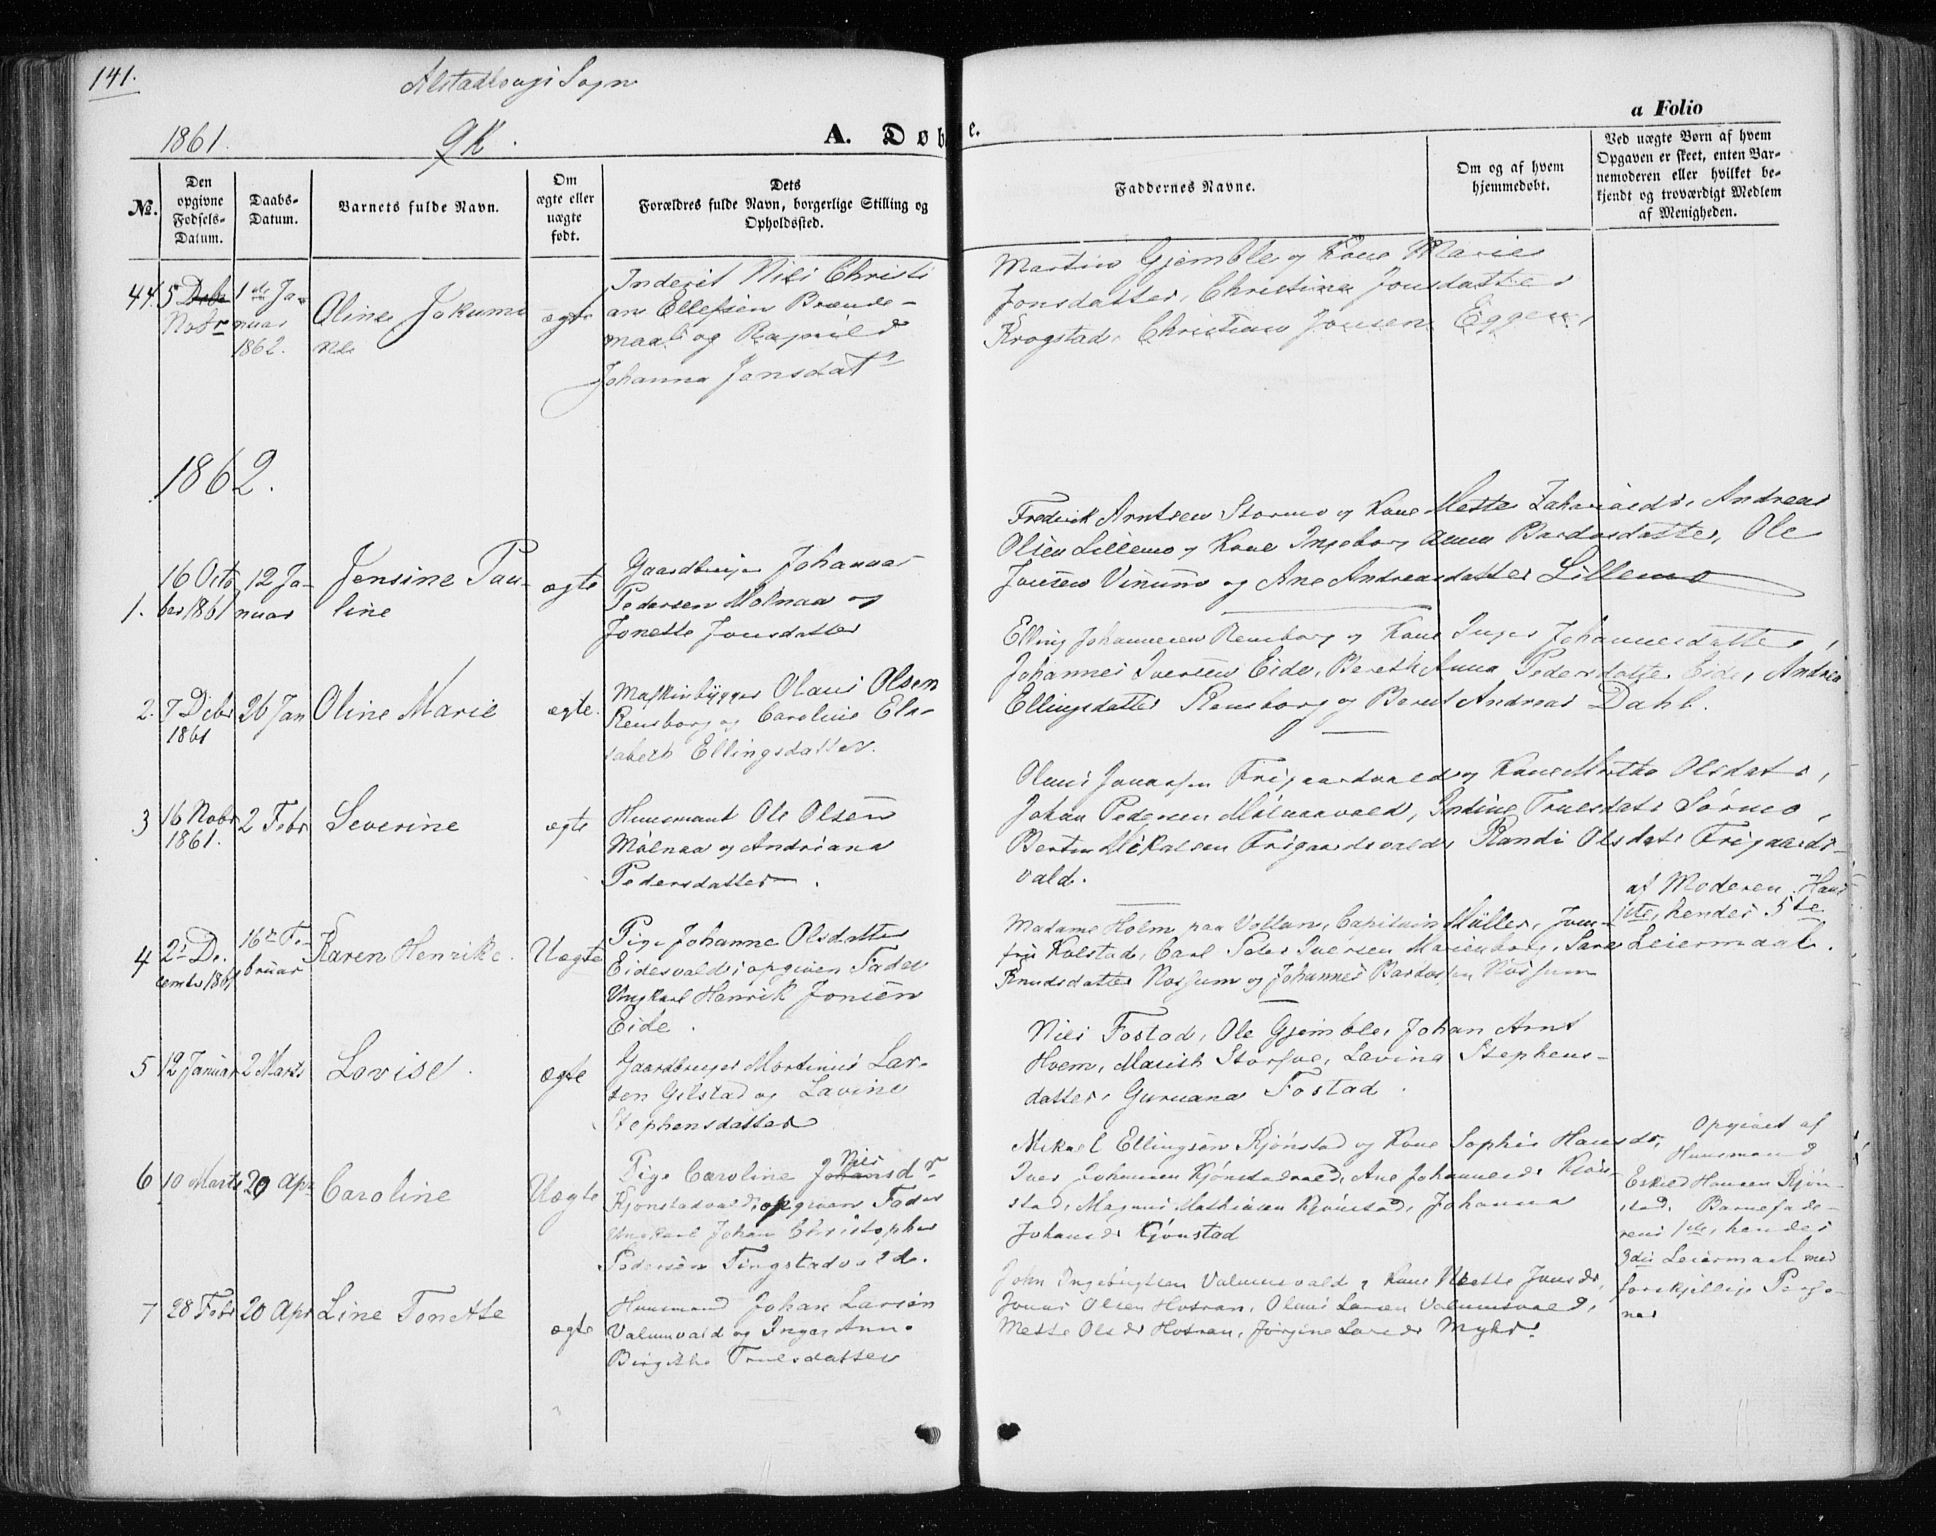 141.
Alstadhougs Sogn
1861.
QK.
A. Døbte.
a Folio
No.
Den opgivne Fødsels-Datum.
Daabs-Datum.
Barnets fulde Navn.
Om ægte eller uægte født.
Dets Forældres fulde Navn, borgerlige Stilling og Opholdssted.
Faddernes Navne.
Om og af hvem hjemmedøbt.
Ved uægte Børn af hvem Opgaven er skeet, enten Barnemoderen eller hvilket bekjendt og troværdigt Medlem af Menigheden.
44.
5 Debr
Nobr
1ste Ja
nuar
1862.
Oline Jokumi
ne
ægte
Inderst Nils Christi
an Ellefsen Brande
maal og Ragnild
Johanna Jonsdatr
Martin Gjemble og Kone Marie
Jonsdatter, Christina Jonsdatter
Krogstad, Christian Jonsen Eggen,
1862.
1.
16 Octo
ber 1861
12 Ja-
nuar
Jensine Pau-
line
ægte
Gaardbruger Johannes
Pedersen Molnaa og
Jonette Jonsdatter
Frederik Arntsen Stormo og Kone Mette Zakariasdr, Andreas
Olsen Lillemo og Kone Ingeborg Anna Bardosdatter, Ole
Jonsen Vinnno og Ane Andreasdatter Lillemo
2.
7 Debr
1861
26 Jan
Oline Marie
ægte.
Maskinbygger Olaus Olsen
Rensborg og Caroline Eli-
sabeth Ellingsdatter.
Elling Johannesen Rensborg og Kone Inger Johannesdatter,
Johannes Iversen Eide, Bereth Anna Pedersdatter Eide, Andrea
Ellingsdatter Rensborg og Berent Andreas Dahl.
3
16 Nobr
1861.
2 Febr
Severine
ægte
Huusmand Ole Olsen
Molnaa og Andriana
Pedersdatter.
Olaus Jonassen Frigaardsvald og Kone Martha Olsdatr,
Johan Pedersen Molnaavald, Indine Truelsdatr Sørmo,
Bertin Mikalsen Frigaardsvald, Randi Olsdatr Frigaards-
vald.
4
2d De-
cembr 1861
16de Fe-
bruar
Karen Henrike.
Uægte
Pige Johanne Olsdatter
Eidesvald; opgiven Fader
Ungkarl Henrik Jonsen
Eide.
Madame Holm paa Voltun, Capitain Müller, Jom-
fru Kolstad, Carl Peter Iversen Marienborg, Sara
Knudsdatter Rossum og Johannes Bardosen Rossum
af Moderen. Hans
1ste, hendes 5te
Leiermaal.
5
12 Januar
2 Marts
Lovise.
ægte
Gaardbruger Martinus Lar-
sen Gilstad og Lavine
Stephensdatter
Nils Fostad, Ole Gjemble, Johan Arnt
Hoem, Marith Storsve, Lavina Stephens-
datter, Guruana Fostad.
6
10 Marts
20 Apr
Caroline
Uægte
Nils
Pige Caroline Johansdr
Kjønstadvald; opgiven Fader
Ungkarl Johan Christopher
Pedersen Tingstadvald.
Mikael Ellingsen Kjønstad og Kone Sophie Hansdr,
Iver Johansen Kjønstadvald, Ane Johannesdr Kjøn-
stad, Magnus Mathiasen Kjønstad, Johanna
Johansdr Kjønstad
Opgivet af
Huusmand
Eskild Hansen Kjøn-
stad. Barnefade-
rens 1ste, hendes
3die Leiermaal med
forskjellige Perso-
ner
7
28 Febr
20 Apr
Line Tonette
ægte
Huusmand Johan Larsen
Valumvald og Inger Anne
Birgithe Truelsdatter
John Ingebrigtsen Valumsvald, Kone Mette Jonsdr,
Jonas Olsen Hotran, Olaus Larsen Valumsvald,
Mette Olsdr Hotran, Jørgine Larsdr Myhr.